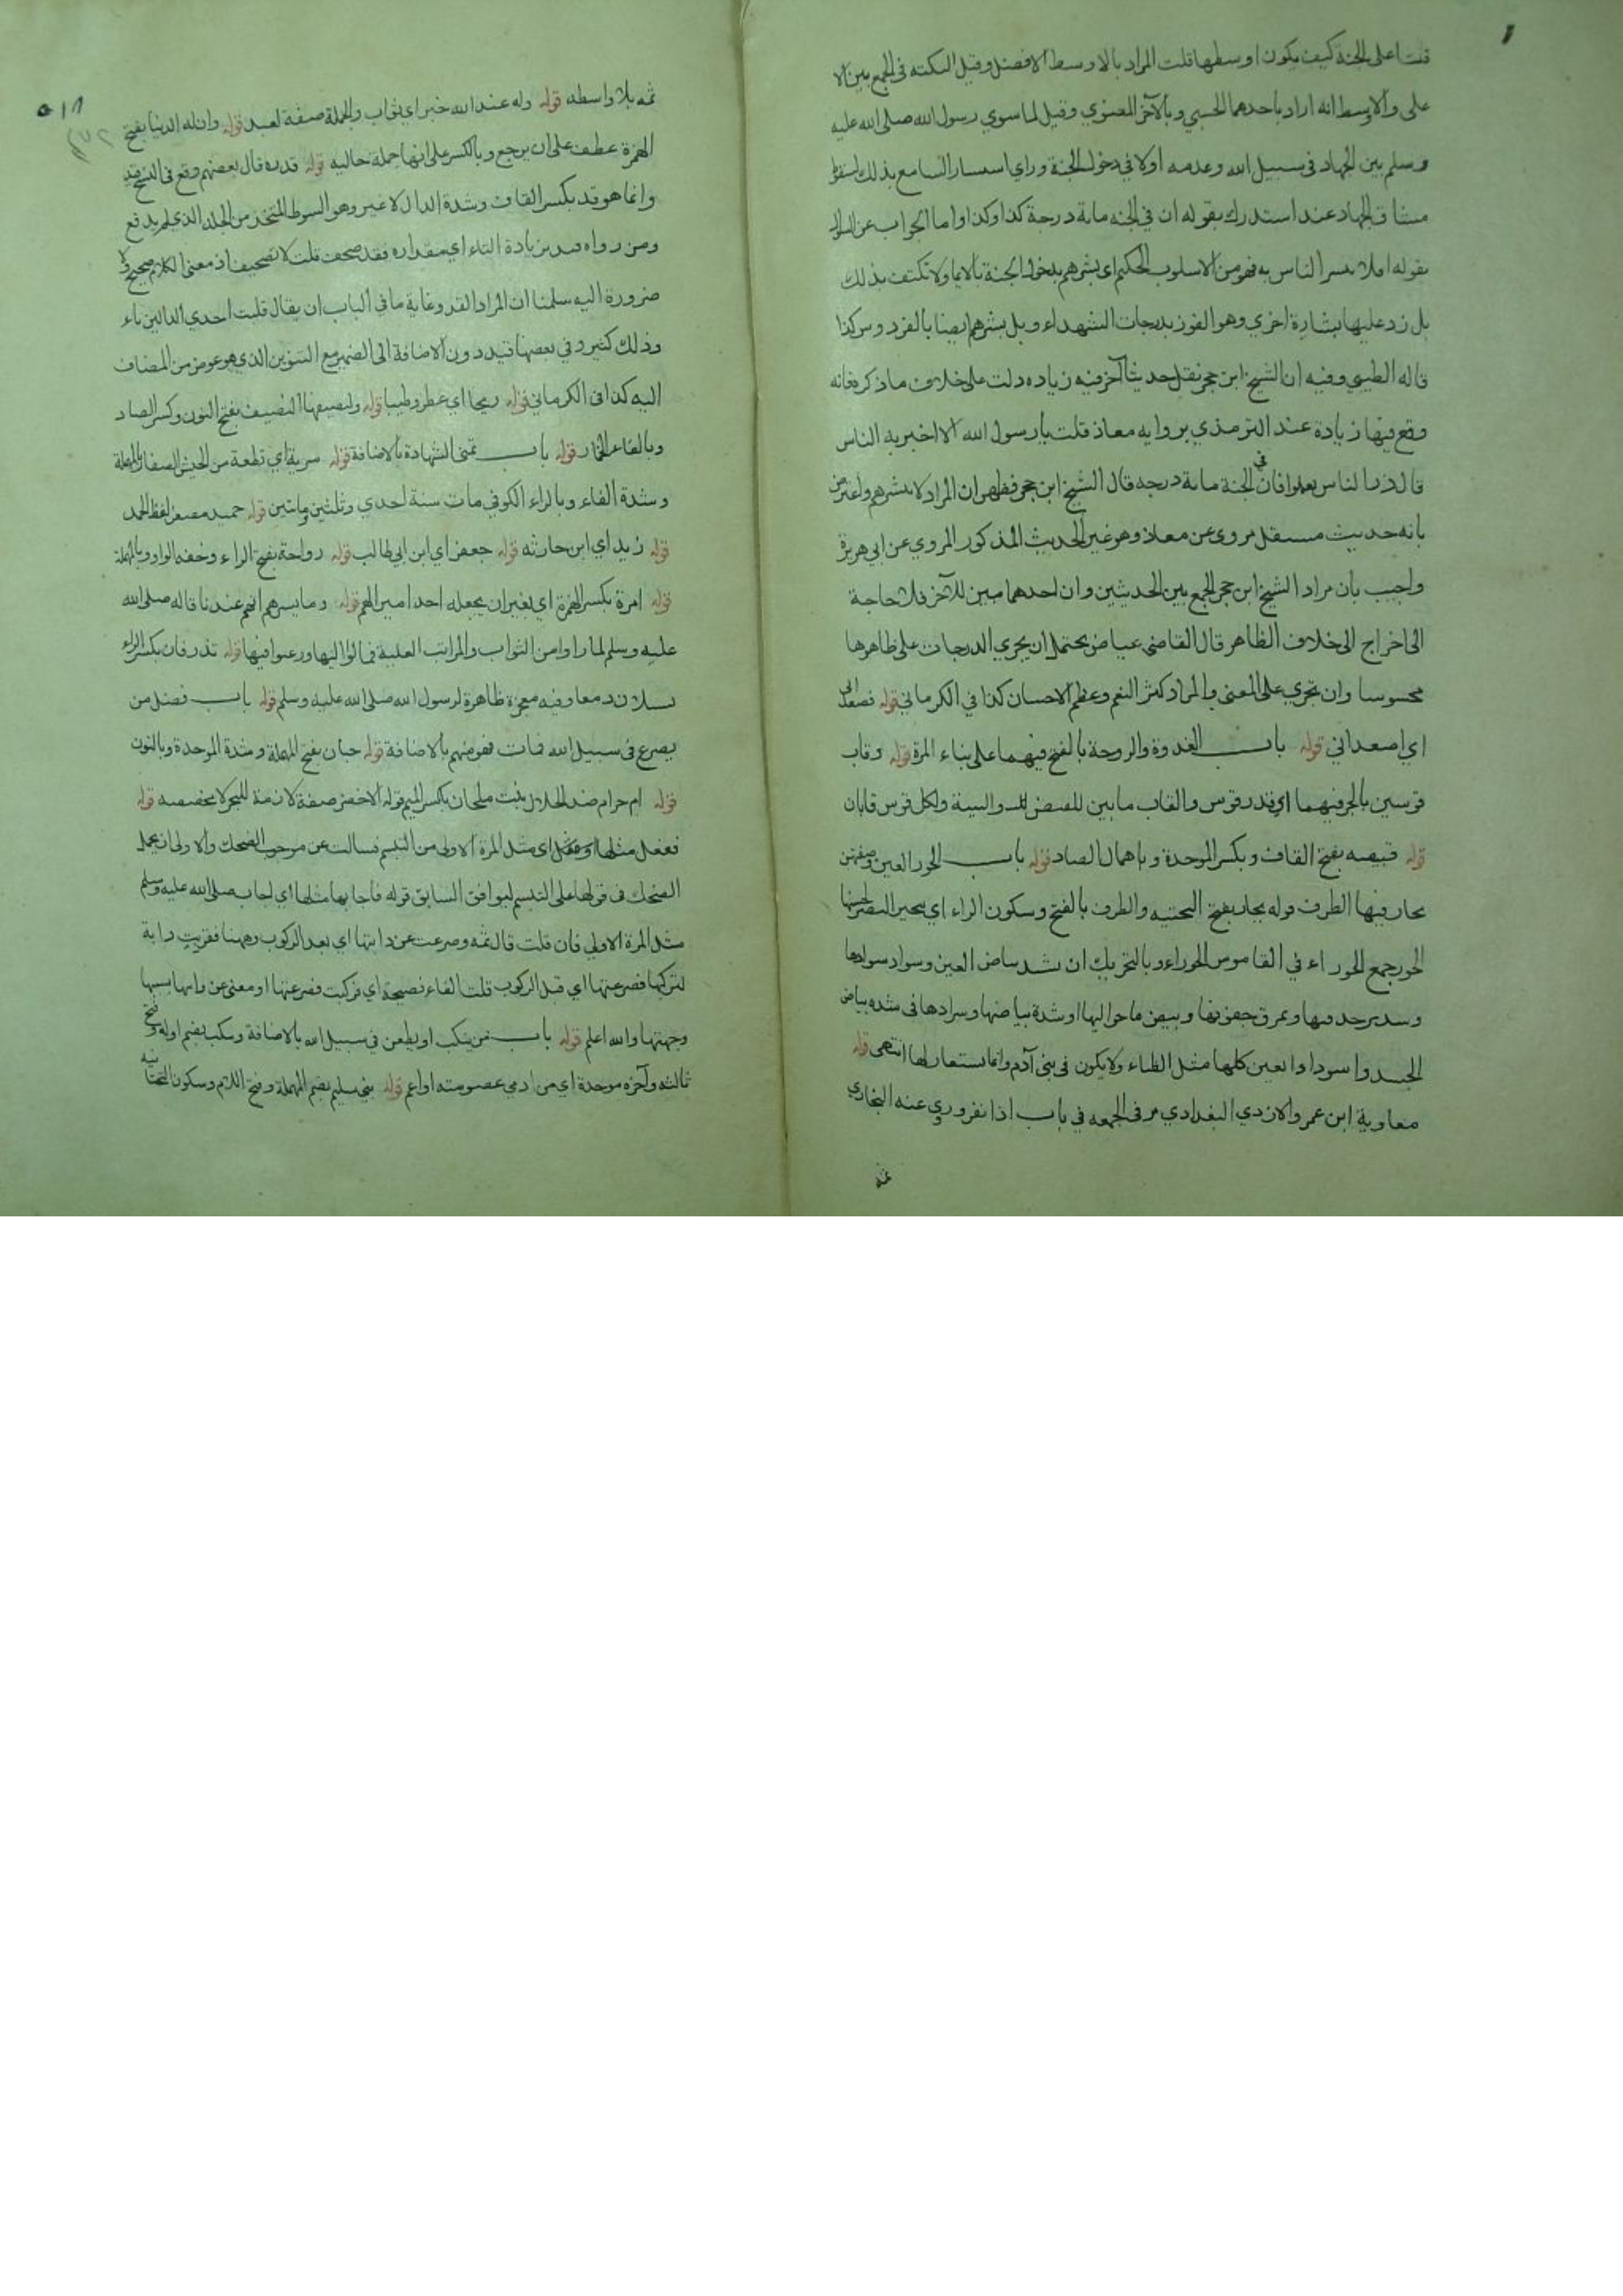 قلت اعلى الجنة كيف يكون اوسطها قلت المراد بالاوسط الافضل وقيل النكته فى الجمع بين الا
على والاوسط انه اراد باحدهما الحسي وبالآخر المعنوي وقيل لما سوي رسول الله صلى الله عليه
وسلم بين الجهاد فى سبيل الله وعدمه اولا في دخول الجنة وراي السامع بذلك
مشاق الجهاد عند استدرك بقوله ان في الجنه ماية درجة كذا وكذا واما الجواب عن السوال
بقوله افلا نبشر الناس به فهو من الاسلوب الحكيم اى بشرهم بدخول الجنة بالايما ولا تكتف بذلك
بل زد عليها بشارة اخري وهو الفوز بدرجات الشهداء وبل بشرهم ايضا بالفردوس كذا
قاله الطيبي وفيه ان الشيخ ابن حجر نقل حديثا آخر فيه زياده دلت على خلاف ما ذكره فانه
وقع فيها زيادة عند الترمذي بروايه معاذ قلت يا رسول الله الا اخبر به الناس
قال ذر الناس يعملوا فان في الجنة ماية درجه قال الشيخ ابن حجر فظهر ان المراد لا تبشرهم واعترض
بانه حديث مستقل مروى عن معاذ وهو غير الحديث المذكور المروي عن ابي هريرة
واجيب بان مراد الشيخ ابن حجر الجمع بين الحديثين وان احدهما مبين للآخر فلا حاجة
الى اخراج الى خلاف الظاهر قال القاضى عياض يحتمل ان يجري الدرجات على ظاهرها
محسوسا وان تجري على المعنى والمراد كثر النعم وعظم الاحسان كذا في الكرماني قوله فصعدا بى
اي اصعداني قوله باب الغدوة والروحة بالفتح فيهما على بناء المرة قوله وقاب
قوسين بالجر فيهما اي قدر قوس والقاب ما بين المقبض والسية ولكل قوس قابان
قوله قبيصه بفتح القاف وبكسر الموحدة وباهمال الصاد قوله باب الحور العين وصفتهن
يحار فيها الطرف قوله يحار بفتح التحتيه والطرف بالفتح وسكون الراء اي يتحير البصر لحسنها
الحور جمع الحوراء في القاموس الحوراء وبالتحريك ان يشتد بياض العين وسواد سوادها
وتستدير حدقتها وترق جفونها ويبيض ما حواليها او شدة بياضها وسوادها فى شده بياض
الجسد واسوداد العين كلها مثل الظباء ولا يكون فى بنى آدم وانما يستعار لها انتهى قوله
معاوية ابن عمرو الازدي البغدادي مر فى الجمعه في باب اذا نفر وروي عنه البخاري
ثمه
ثمه بلا واسطه قوله وله عند الله خير اي ثواب والجملة صفة لعبد قوله وان له الدنيا بفتح
الهمزة عطف على ان يرجع وبالكسر على انها جملة حاليه قوله قده قال بعضهم وقع فى النسخ قيد
وانما هو قد بكسر القاف وشدة الدال لا غير وهو السوط المتخذ من الجلد الذي لم يدبغ
ومن رواه قيد بزيادة الياء اي مقداره فقد صحف قلت لا تصحيف اذ معنى الكلام صحيح ولا
ضرورة اليه سلمنا ان المراد القد وغاية ما في الباب ان يقال قلبت احدي الدالين ياء
وذلك كثير وفي بعضها قيد دون الاضافة الى الضمير مع التنوين الذي هو عوض من المضاف
اليه كذا فى الكرماني قوله ريحا اي عطر وطيبا قوله ولنصيفها النصيف بفتح النون وكسر الصاد
وبالفاء الخمار قوله باب تمنى الشهادة بالاضافة قوله سرية اي قطعة من الجيش الصفار بالمهملة
وشدة الفاء وبالراء الكوفي مات سنة احدي وثلثين وماتين قوله حميد مصغر لفظ الحمد
قوله زيد اي ابن حارثه قوله جعفر اي ابن ابي طالب قوله رواحة بفتح الراء وخفه الواو وبالمهملة
قوله امرة بكسر الهمزة اي لغير ان يجعله احد اميرا لهم قوله وما يسرهم انهم عندنا قاله صلى الله
عليه وسلم لما راوا من الثواب والمراتب العلية فمالوا اليها ورغبوا فيها قوله تذرفان بكسر الراء
تسيلان دمعا وفيه معجزة ظاهرة لرسول الله صلى الله عليه وسلم قوله باب فضل من
يصرع فى سبيل الله فمات فهو منهم بالاضافة قوله حبان بفتح المهملة وشدة الموحدة وبالنون
قوله ام حرام ضد الحلال بنت ملحان بكسر الميم قوله الاخضر صفة لازمة للبحر لا مخصصه قوله
ففعل مثلها اي مثل المرة الاولى من التبسم فسالت عن موجب الضحك والاولى ان يحمل
الضحك فى قولها على التبسم ليوافق السابق قوله فاجابها مثلها اي اجاب صلى الله عليه وسلم
مثل المرة الاولي فان قلت قال ثمه وصرعت عن دابتها اي بعد الركوب وههنا فقربت دابة
لتركبها فصرعتها اي قبل الركوب قلت الفاء فصيحة اي فركبت فصرعتها او معنى عن دابتها بسببها
وجهتها والله اعلم قوله باب من ينكب او يطعن في سبيل الله بالاضافة وينكب بضم اوله وفتح
ثالثه وآخره موحدة اي من ادمي عضو منه او اعم قوله بنى سليم بضم المهملة وفتح اللام وسكون التحتانيه